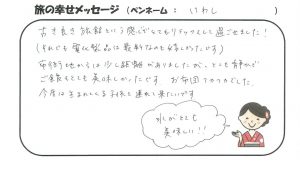 旅の幸せメッセージ（ペンネーム： いわし ）
古き良き旅館という感じでとてもリラックスして過ごせました！
（それでも電化製品は最新なのも嬉しかったです）
少し距離がありましたが、とても静かで
ご飯もとても美味しかったです お布団フカフカでした。
今度は生まれてくる子供を連れて来たいです
水がとても
美味しい!!